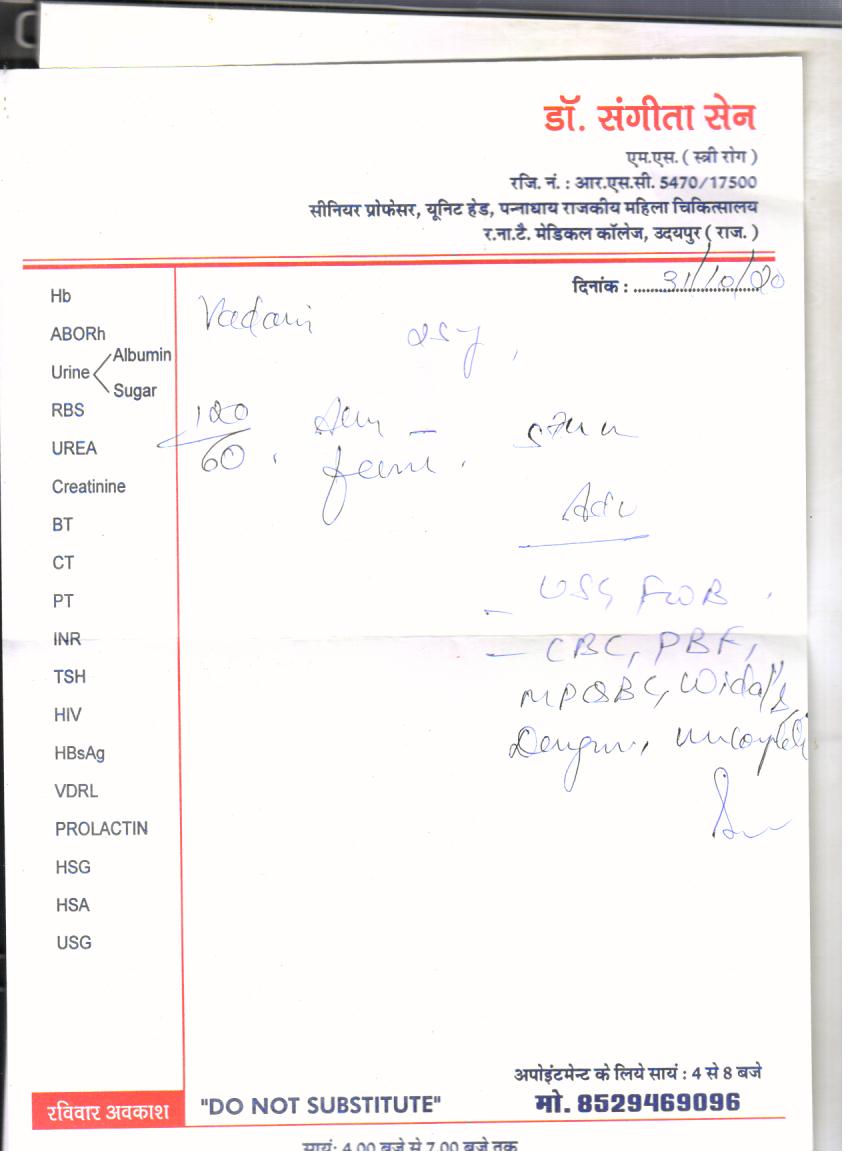 डॉ. संगीता सेन
एम.एस. ( स्त्री रोग )
रजि. नं. : आर.एस.सी. 5470/17500
सीनियर प्रोफेसर, यूनिट हेड, पन्नाधाय राजकीय महिला चिकित्सालय
र.ना.टै. मेडिकल कॉलेज, उदयपुर ( राज. )
दिनांक : 31/10/20
Hb
ABORh
Urine Albumin
Sugar
RBS
UREA
Creatinine
BT
CT
PT
INR
TSH
HIV
HBsAg
VDRL
PROLACTIN
HSG
HSA
USG
120
60
Adv
- USG FWB
- CBC, PBF,
MPQBC, Widal,
रविवार अवकाश
"DO NOT SUBSTITUTE"
अपोइंटमेन्ट के लिये सायं : 4 से 8 बजे
मो. 8529469096
सायं: 4.00 बजे से 7.00 बजे तक